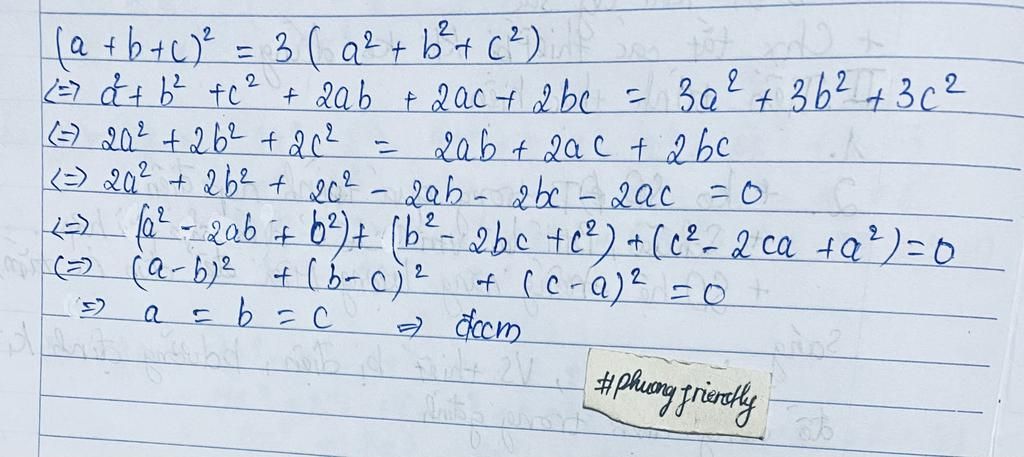 (a + b + c)² = 3 ( a² + b² + c²)
<=> a² + b² + c² + 2ab + 2ac + 2bc = 3a² + 3b² + 3c²
<=> 2a² + 2b² + 2c² = 2ab + 2ac + 2bc
<=> 2a² + 2b² + 2c² - 2ab - 2bc - 2ac = 0
<=> (a² - 2ab + b²) + (b² - 2bc + c²) + (c² - 2ca + a²) = 0
<=> (a-b)² + (b-c)² + (c-a)² = 0
=> a = b = c => đccm
#phuongfriendly